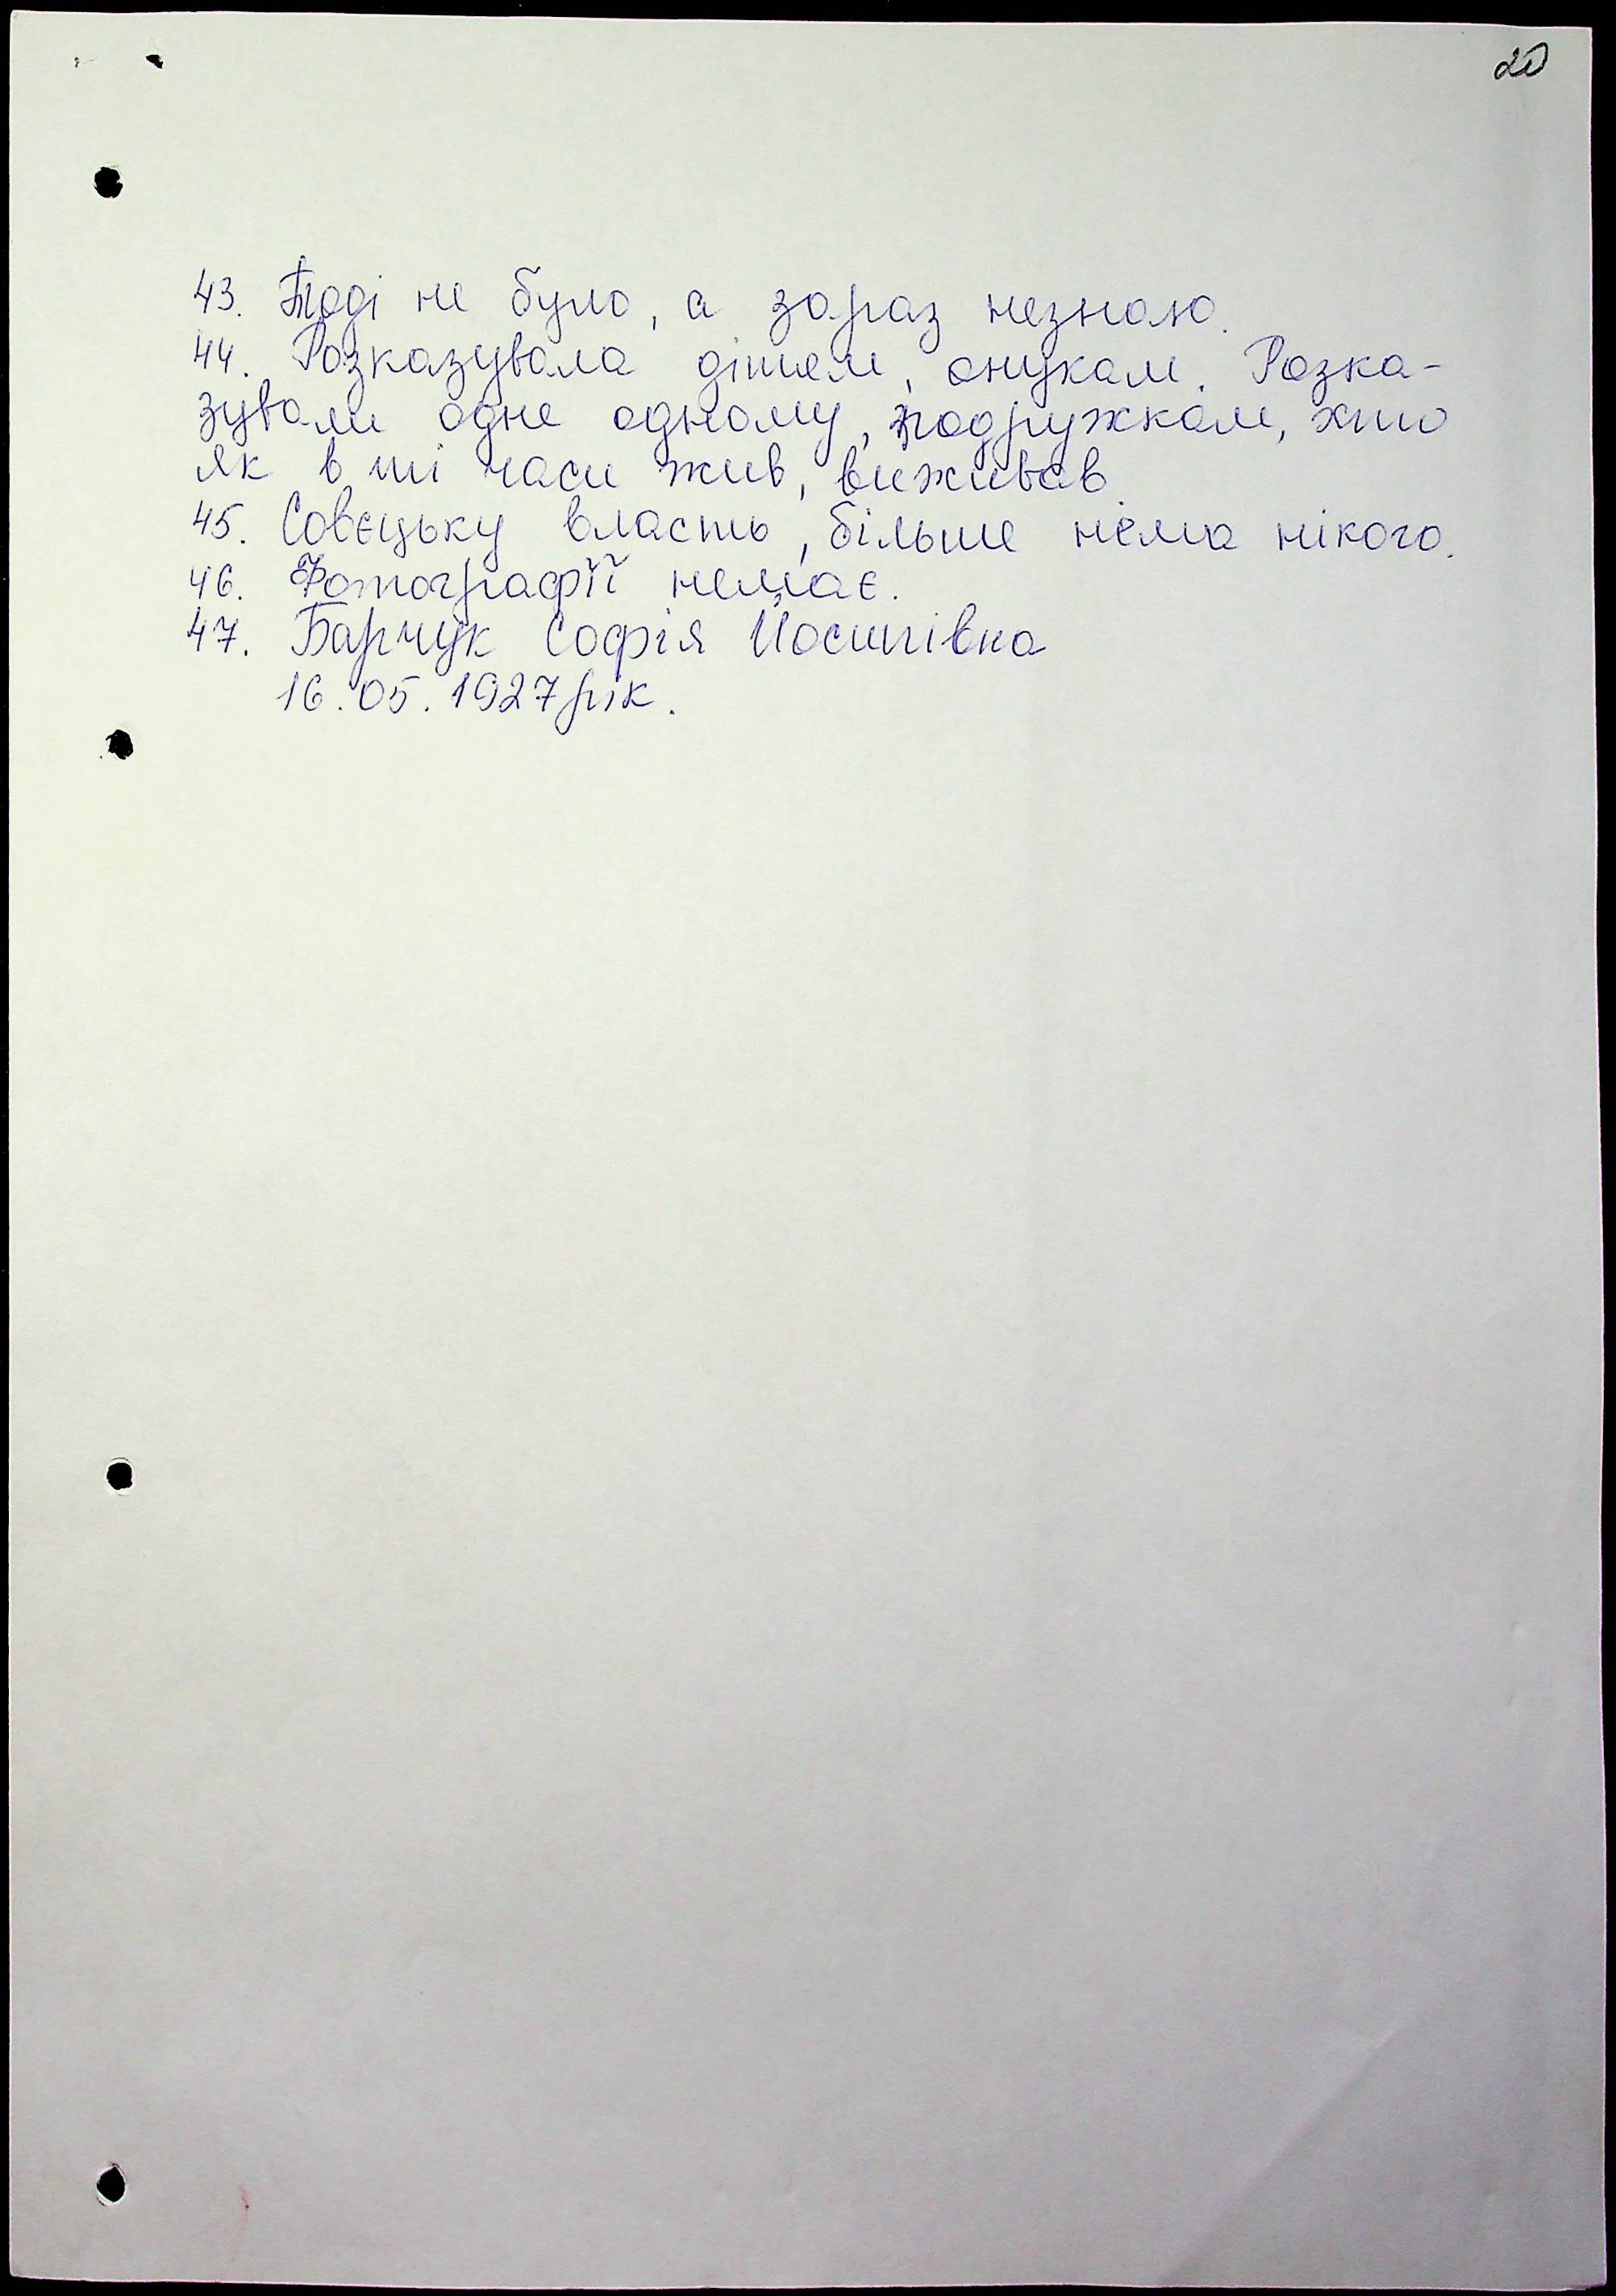 20
43. Тоді не було, а зараз незнаю.
44. Розказувала дітям, онукам. Розка-
зували одне одному, подружкам, хто
як в ті часи жив, виживав.
45. Совєцьку власть, більше нема нікого.
46. Фотографії немає.
47. Барчук Софія Йосипівна
16.05.1927 рік.